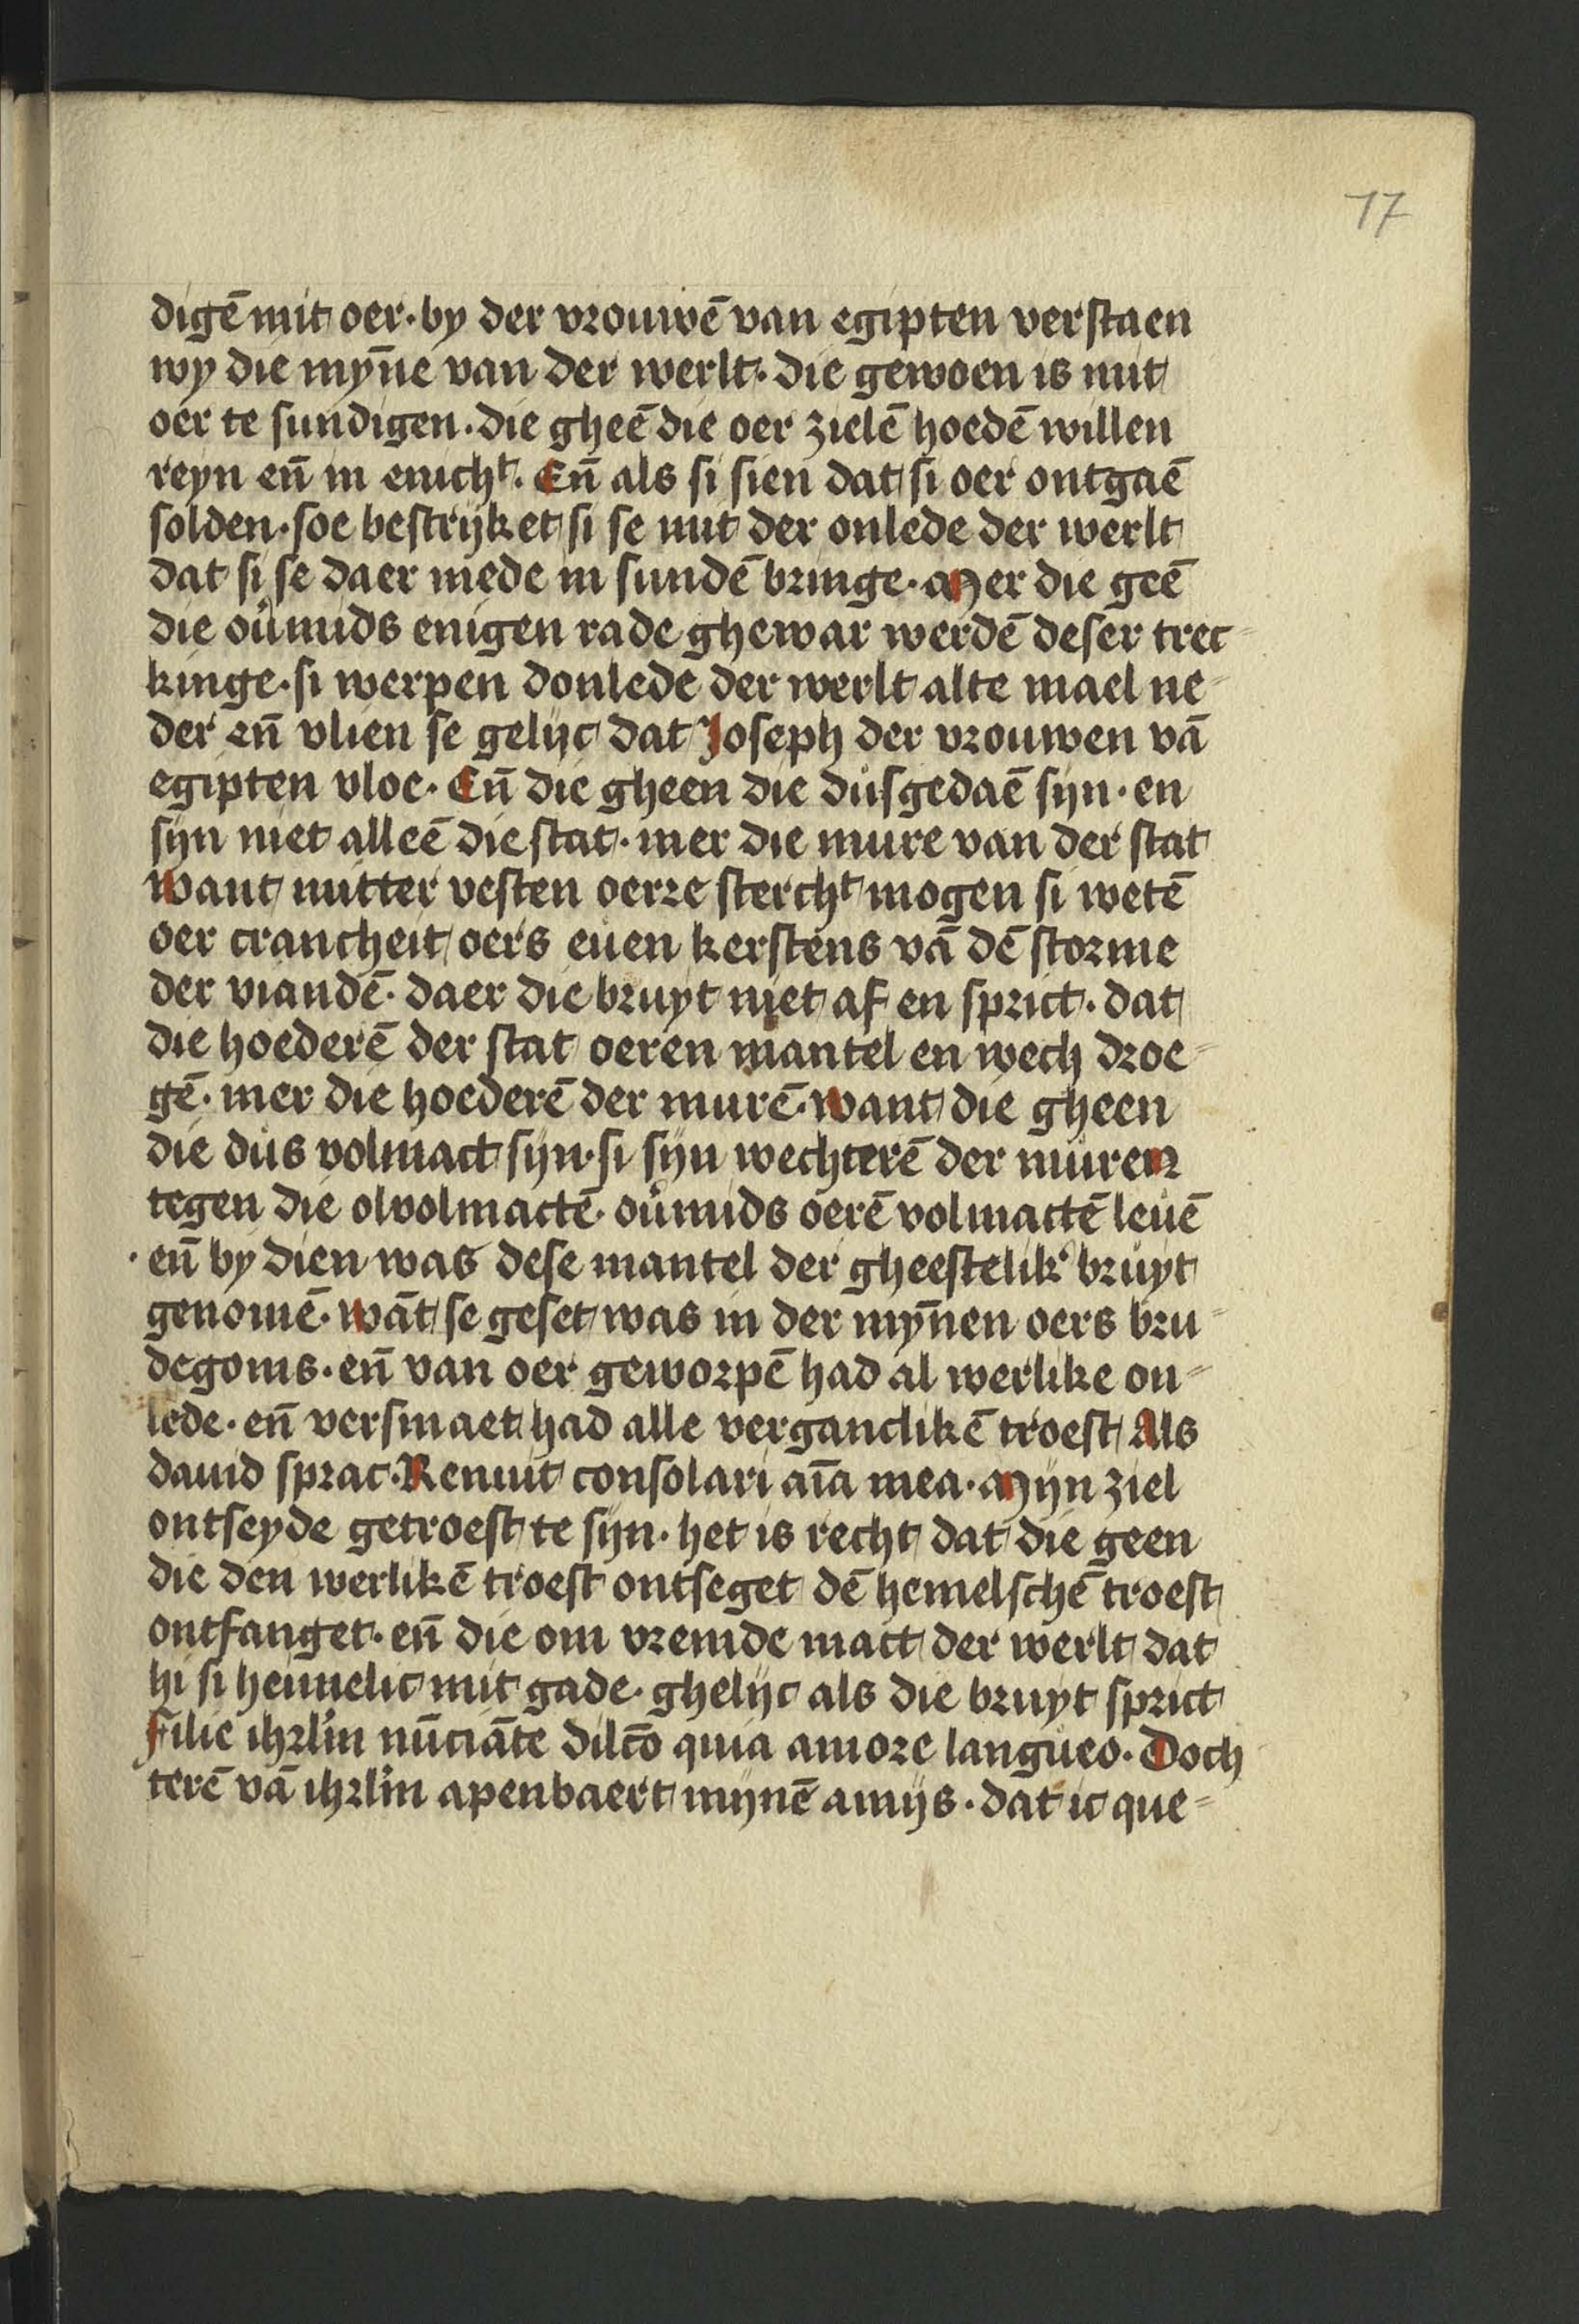 17
digē mit oer · by der vrouwē van egipten verstaen
wy die myn̄e van der werlt · die gewoen is mit
oer te sundigen · die gheē die oer zielē hoedē willen
reyn en̄ in enicht · En̄ als si sien dat si oer ontgaē
solden · soe bestrijket si se mit der onlede der werlt
dat si se daer mede in sundē bringe · Mer die geē
die ou̇mids enigen rade ghewar werdē deser trec
kinge · si werpen donlede der werlt alte mael ne-
der en̄ vlien se gelijc dat Joseph der vrouwen vā
egipten vloe · En̄ die gheen die dusgedaē sijn · en
sijn niet alleē die stat · mer die mure van der stat
Want mitter vesten oerre stercht mogen si wetē
oer crancheit oers euen kerstens vā dē storme
der viandē · daer die bruyt niet af en sprict · dat
die hoederē der stat oeren mantel en wech droe-
gē · mer die hoederē der murē · Want die gheen
die dus volmact sijn · si sijn wechterē der muren
tegen die olvolmactē · ou̇mids oerē volmactē leuē
· en̄ by dien was dese mantel der gheestelik' bruyt
genomē · Wāt se geset was in der myn̄en oers bru-
degoms · en̄ van oer geworpē had al werlike on-
lede · en̄ versmaet had alle verganclikē troest Als
dauid sprac · Renuit consolari aīa mea · Mijn ziel
ontseyde getroest te sijn · het is recht dat die geen
die den werlikē troest ontseget dē hemelschē troest
ontfanget · en̄ die om vremde mact der werlt dat
hi si heimelic mit gade · ghelijc als die bruyt sprict
Filie ihrl'm nūciāte dilc̄o quia amore langueo · Doch
terē vā ihrl'm apenbaert mijnē amijs · dat ic que-